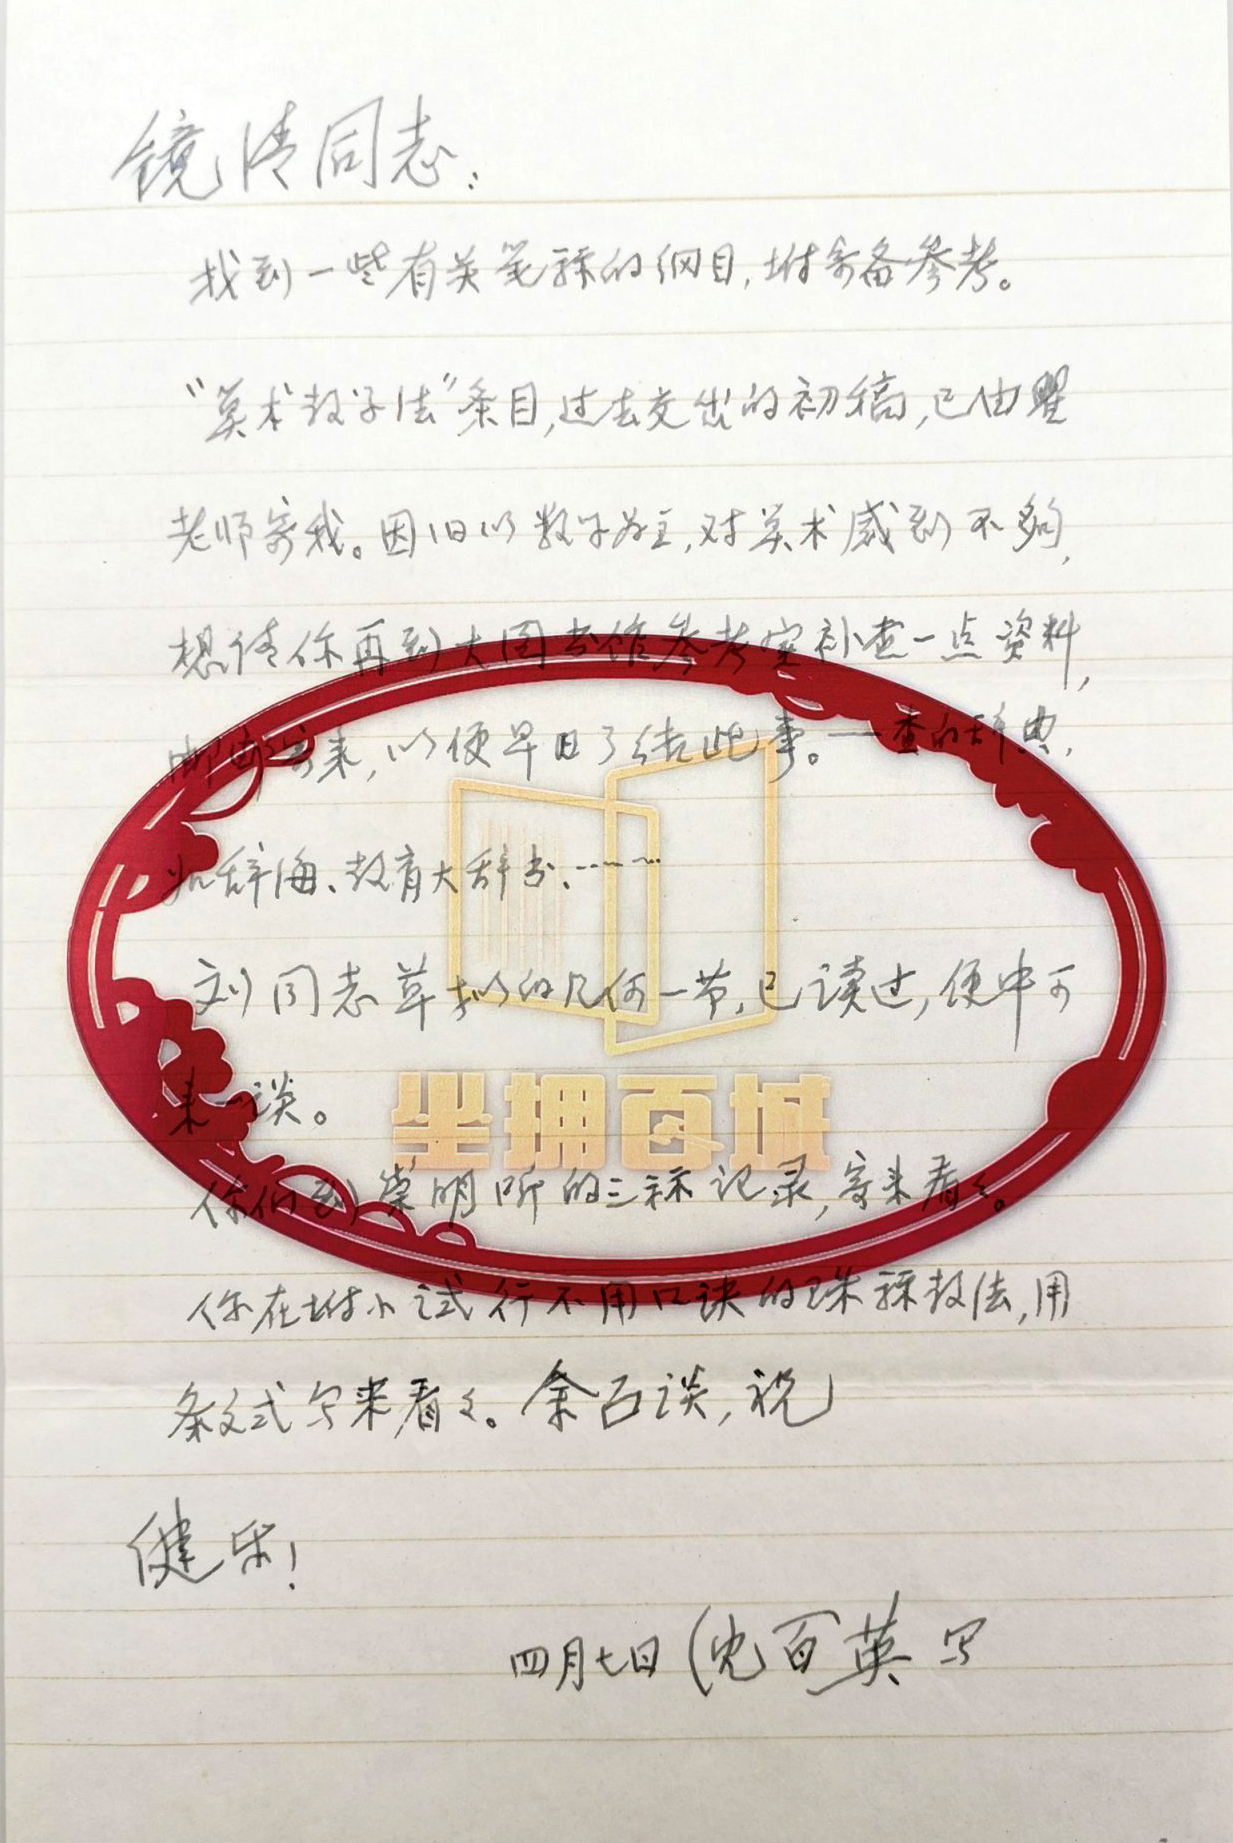 镜清同志：
找到一些有关笔算的纲目，附寄备参考。
“算术教学法”条目，过去交出的初稿，已由瞿
老师寄我。因旧以教学为主，对算术感到不夠，
想请你再到大图书馆参考室补查一点资料，
邮寄来，以便早日了结此事。——查的辞典，
如辞海、教育大辞书、……
刘同志草拟的几何一节，已读过，便中可
来一谈。
坐拥百城
你们到崇明听的三算记录，寄来看々。
你在附小试行不用口诀的珠算教法，用
条文式写来看々。余面谈，祝
健乐！
四月七日（沈百英写